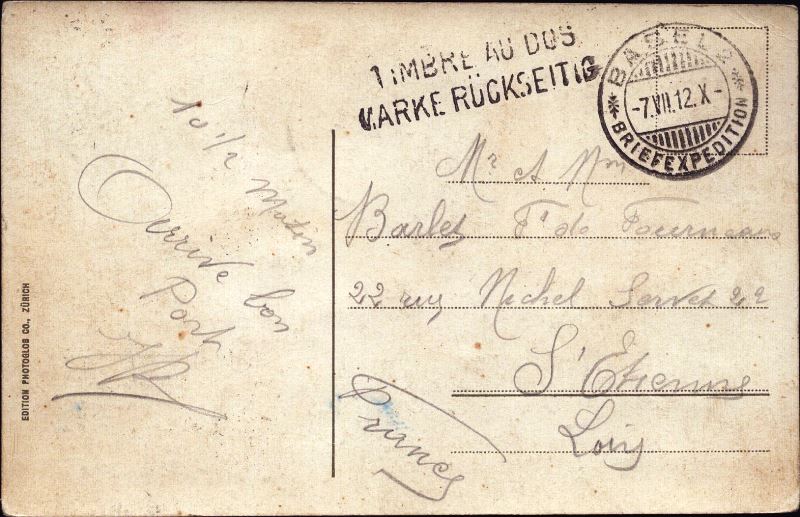 TIMBRE AU DOS
MARKE RÜCKSEITIG
BASEL 2
-7.VII.12.X-
* BRIEFEXPEDITION *
10 1/2 Matin
Arrive bon
Port
EDITION PHOTOGLOB CO., ZÜRICH
Mr et Mme
Barlet Ft de Fourneaux
22 rue Michel Servet 22
St Etienne
Loire
France